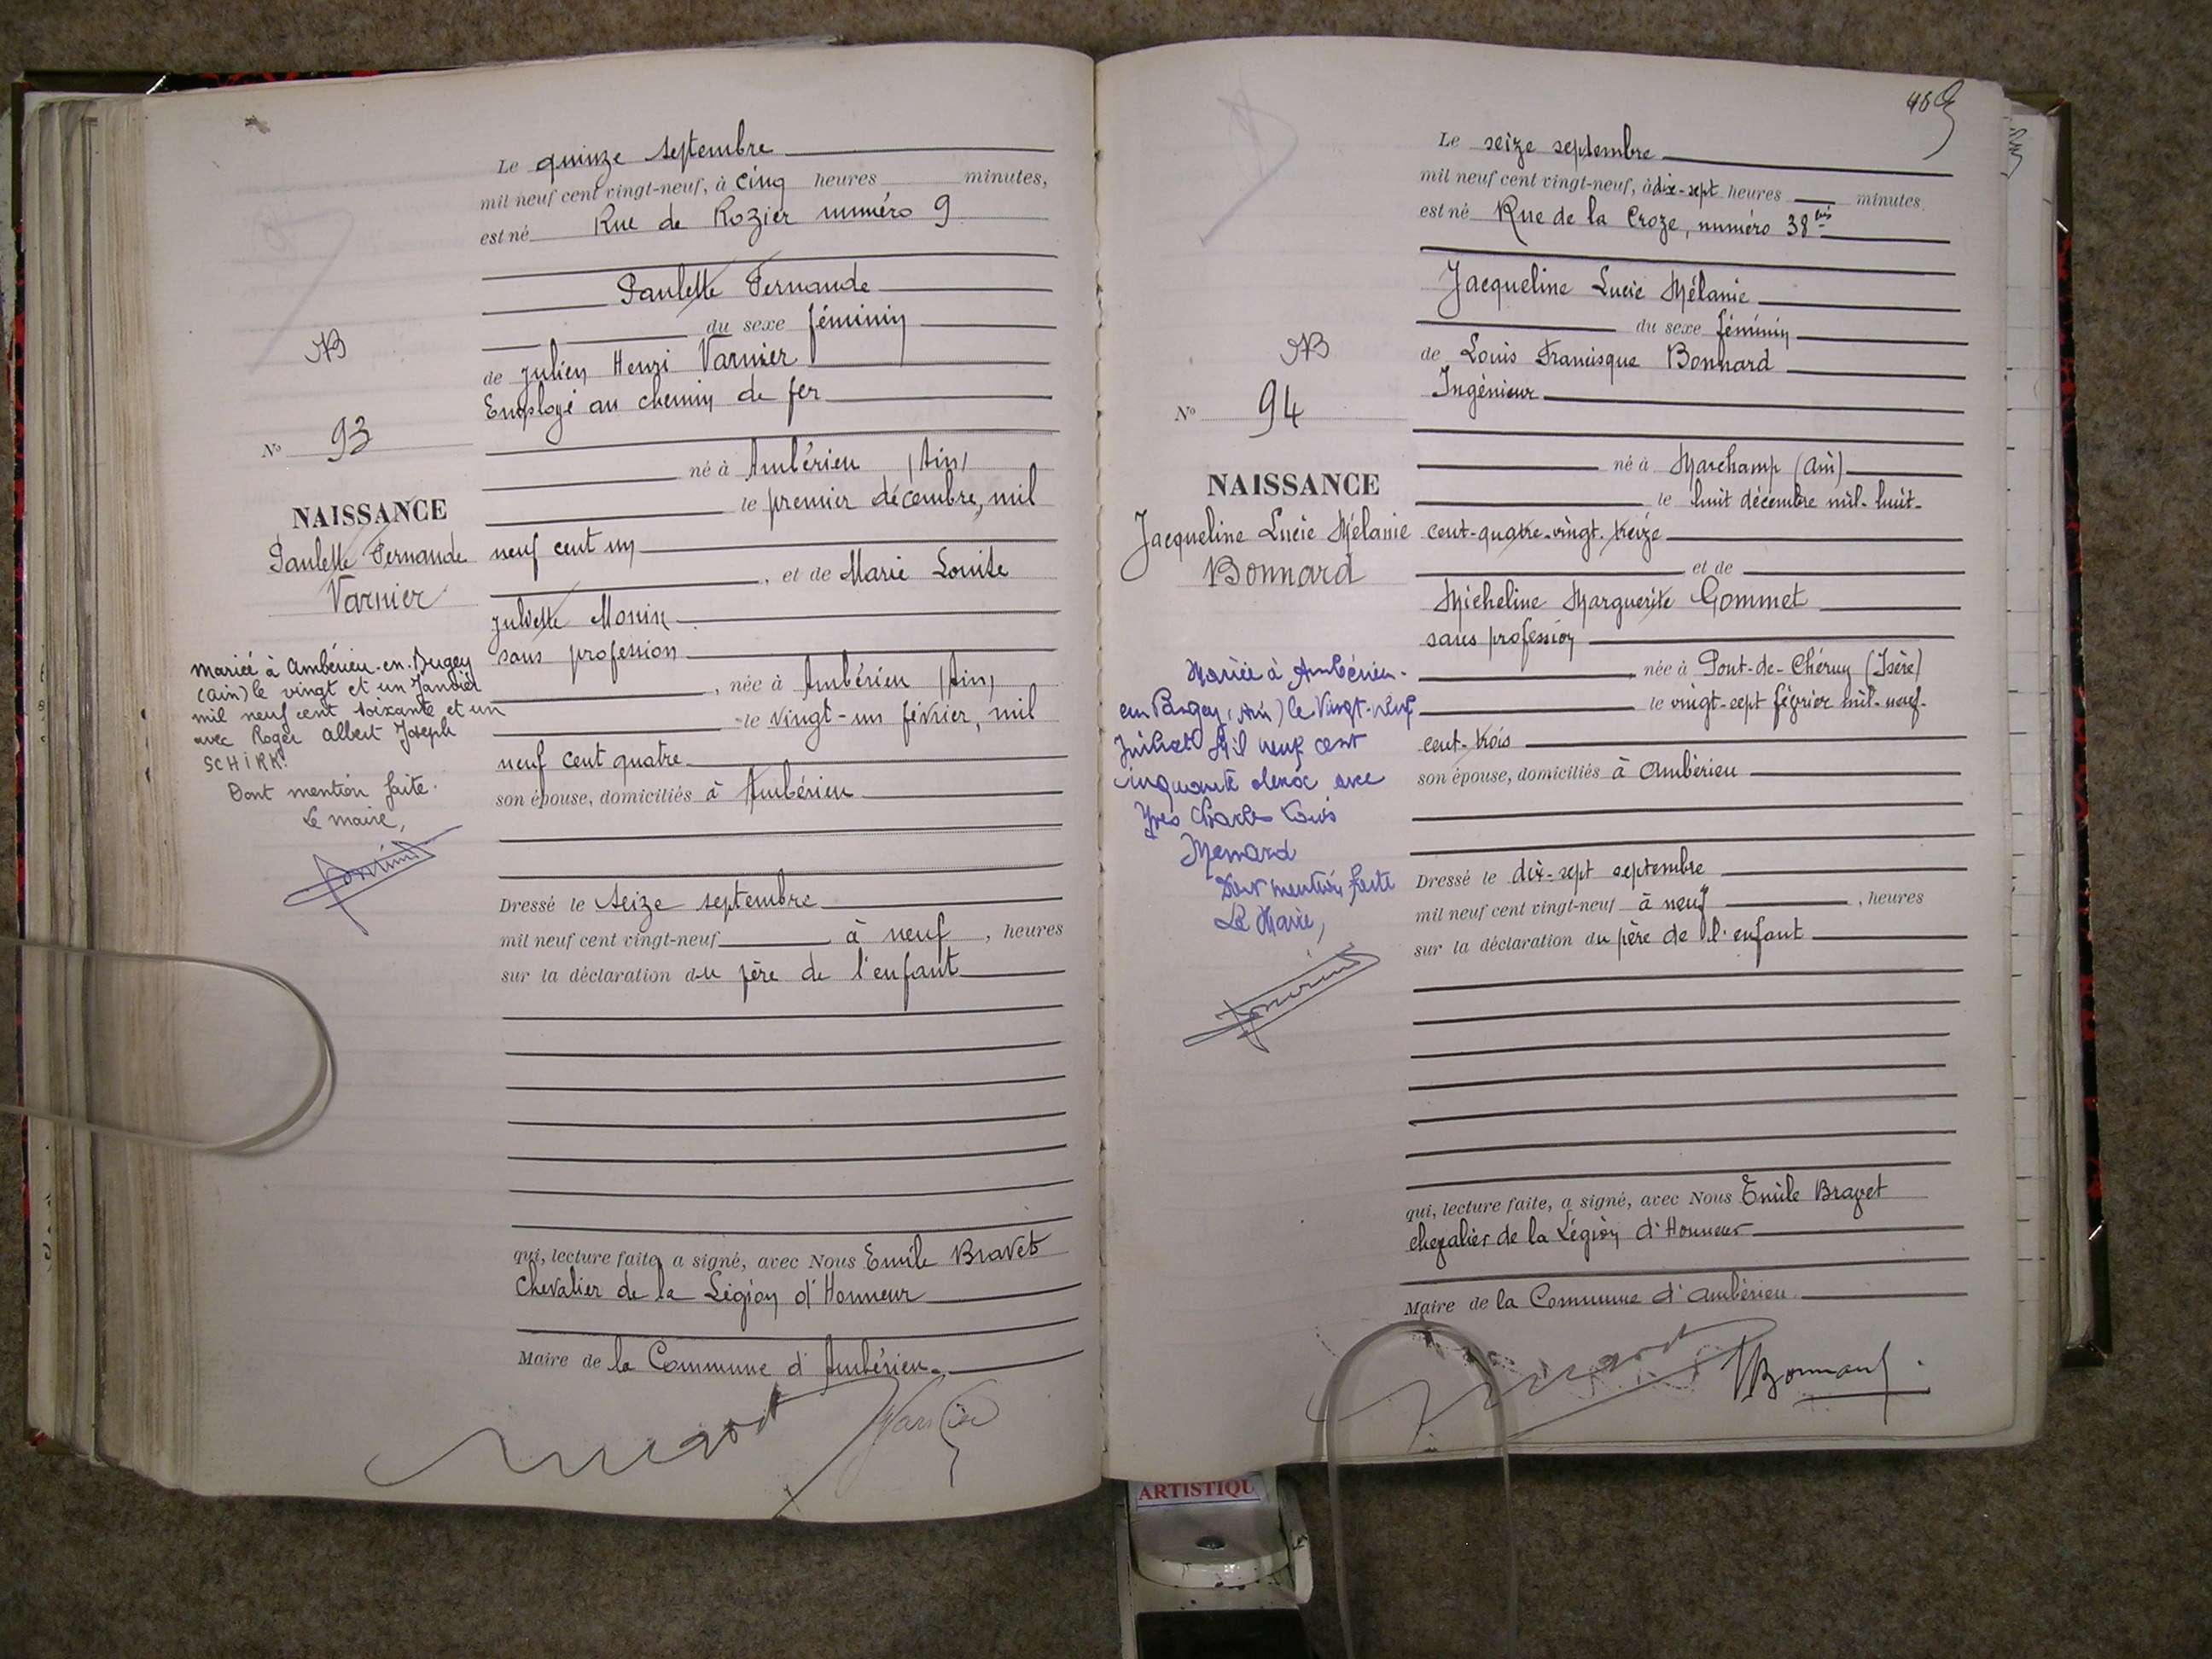 Le quinze septembre
mil neuf cent vingt-neuf, à cinq heures minutes,
est né Rue de Rozier numéro 9
Paulette Fernande
du sexe féminin
NB
de Julien Henri Varnier
Employé au chemin de fer
No 93
né à Ambérieu (Ain)
le premier décembre, mil
NAISSANCE
Paulette Fernande
Varnier
neuf cent un
, et de Marie Louise
Juliette Monin
sans profession
, née à Ambérieu (Ain)
le vingt-un février, mil
neuf cent quatre
son épouse, domiciliés à Ambérieu
Mariée à Ambérieu-en-Bugey
(Ain) le vingt et un Janvier
mil neuf cent soixante et un
avec Roger Albert Joseph
SCHIRK.
Dont mention faite.
Le maire,
Dressé le seize septembre
mil neuf cent vingt-neuf à neuf , heures
sur la déclaration du père de l'enfant
qui, lecture faite, a signé, avec Nous Emile Bravet
Chevalier de la Légion d'Honneur
Maire de la Commune d'Ambérieu.
Varnier
Le seize septembre
mil neuf cent vingt-neuf, à dix-sept heures minutes
est né Rue de la Croze, numéro 38 bis
Jacqueline Lucie Mélanie
du sexe féminin
NB
de Louis Francisque Bonnard
Ingénieur
No 94
né à Marchamp (Ain)
le huit décembre mil-huit-
NAISSANCE
Jacqueline Lucie Mélanie
Bonnard
cent-quatre-vingt-treize
et de
Micheline Marguerite Gommet
sans profession
née à Pont-de-Chéruy (Isère)
le vingt-sept février mil-neuf-
cent-trois
son épouse, domiciliés à Ambérieu
Mariée à Ambérieu-
en Bugey (Ain) le Vingt-neuf
Juillet Mil neuf cent
cinquante deux avec
Yves Charles Louis
Dont mention faite
Le Maire,
Dressé le dix-sept septembre
mil neuf cent vingt-neuf à neuf , heures
sur la déclaration du père de l'enfant
qui, lecture faite, a signé, avec Nous Emile Bravet
chevalier de la Légion d'Honneur
Maire de la Commune d'Ambérieu.
Bonnard
ARTISTIQU